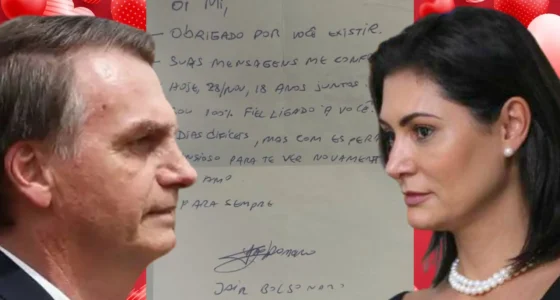 Oi Mi,
- OBRIGADO POR VOCÊ EXISTIR.
- SUAS MENSAGENS ME
HOJE, 28/NOV, 18 ANOS JUNTOS.
100% FIEL LIGADO A VOCÊ.
DIAS DIFÍCEIS, MAS COM
PARA TE VER
PARA SEMPRE
JAIR BOLSONARO